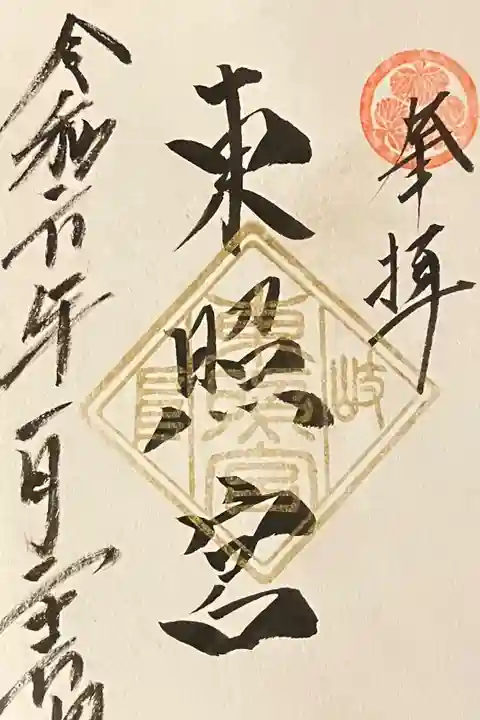 奉拝
東照宮
岐阜
東照宮
令和六年一月二十六日